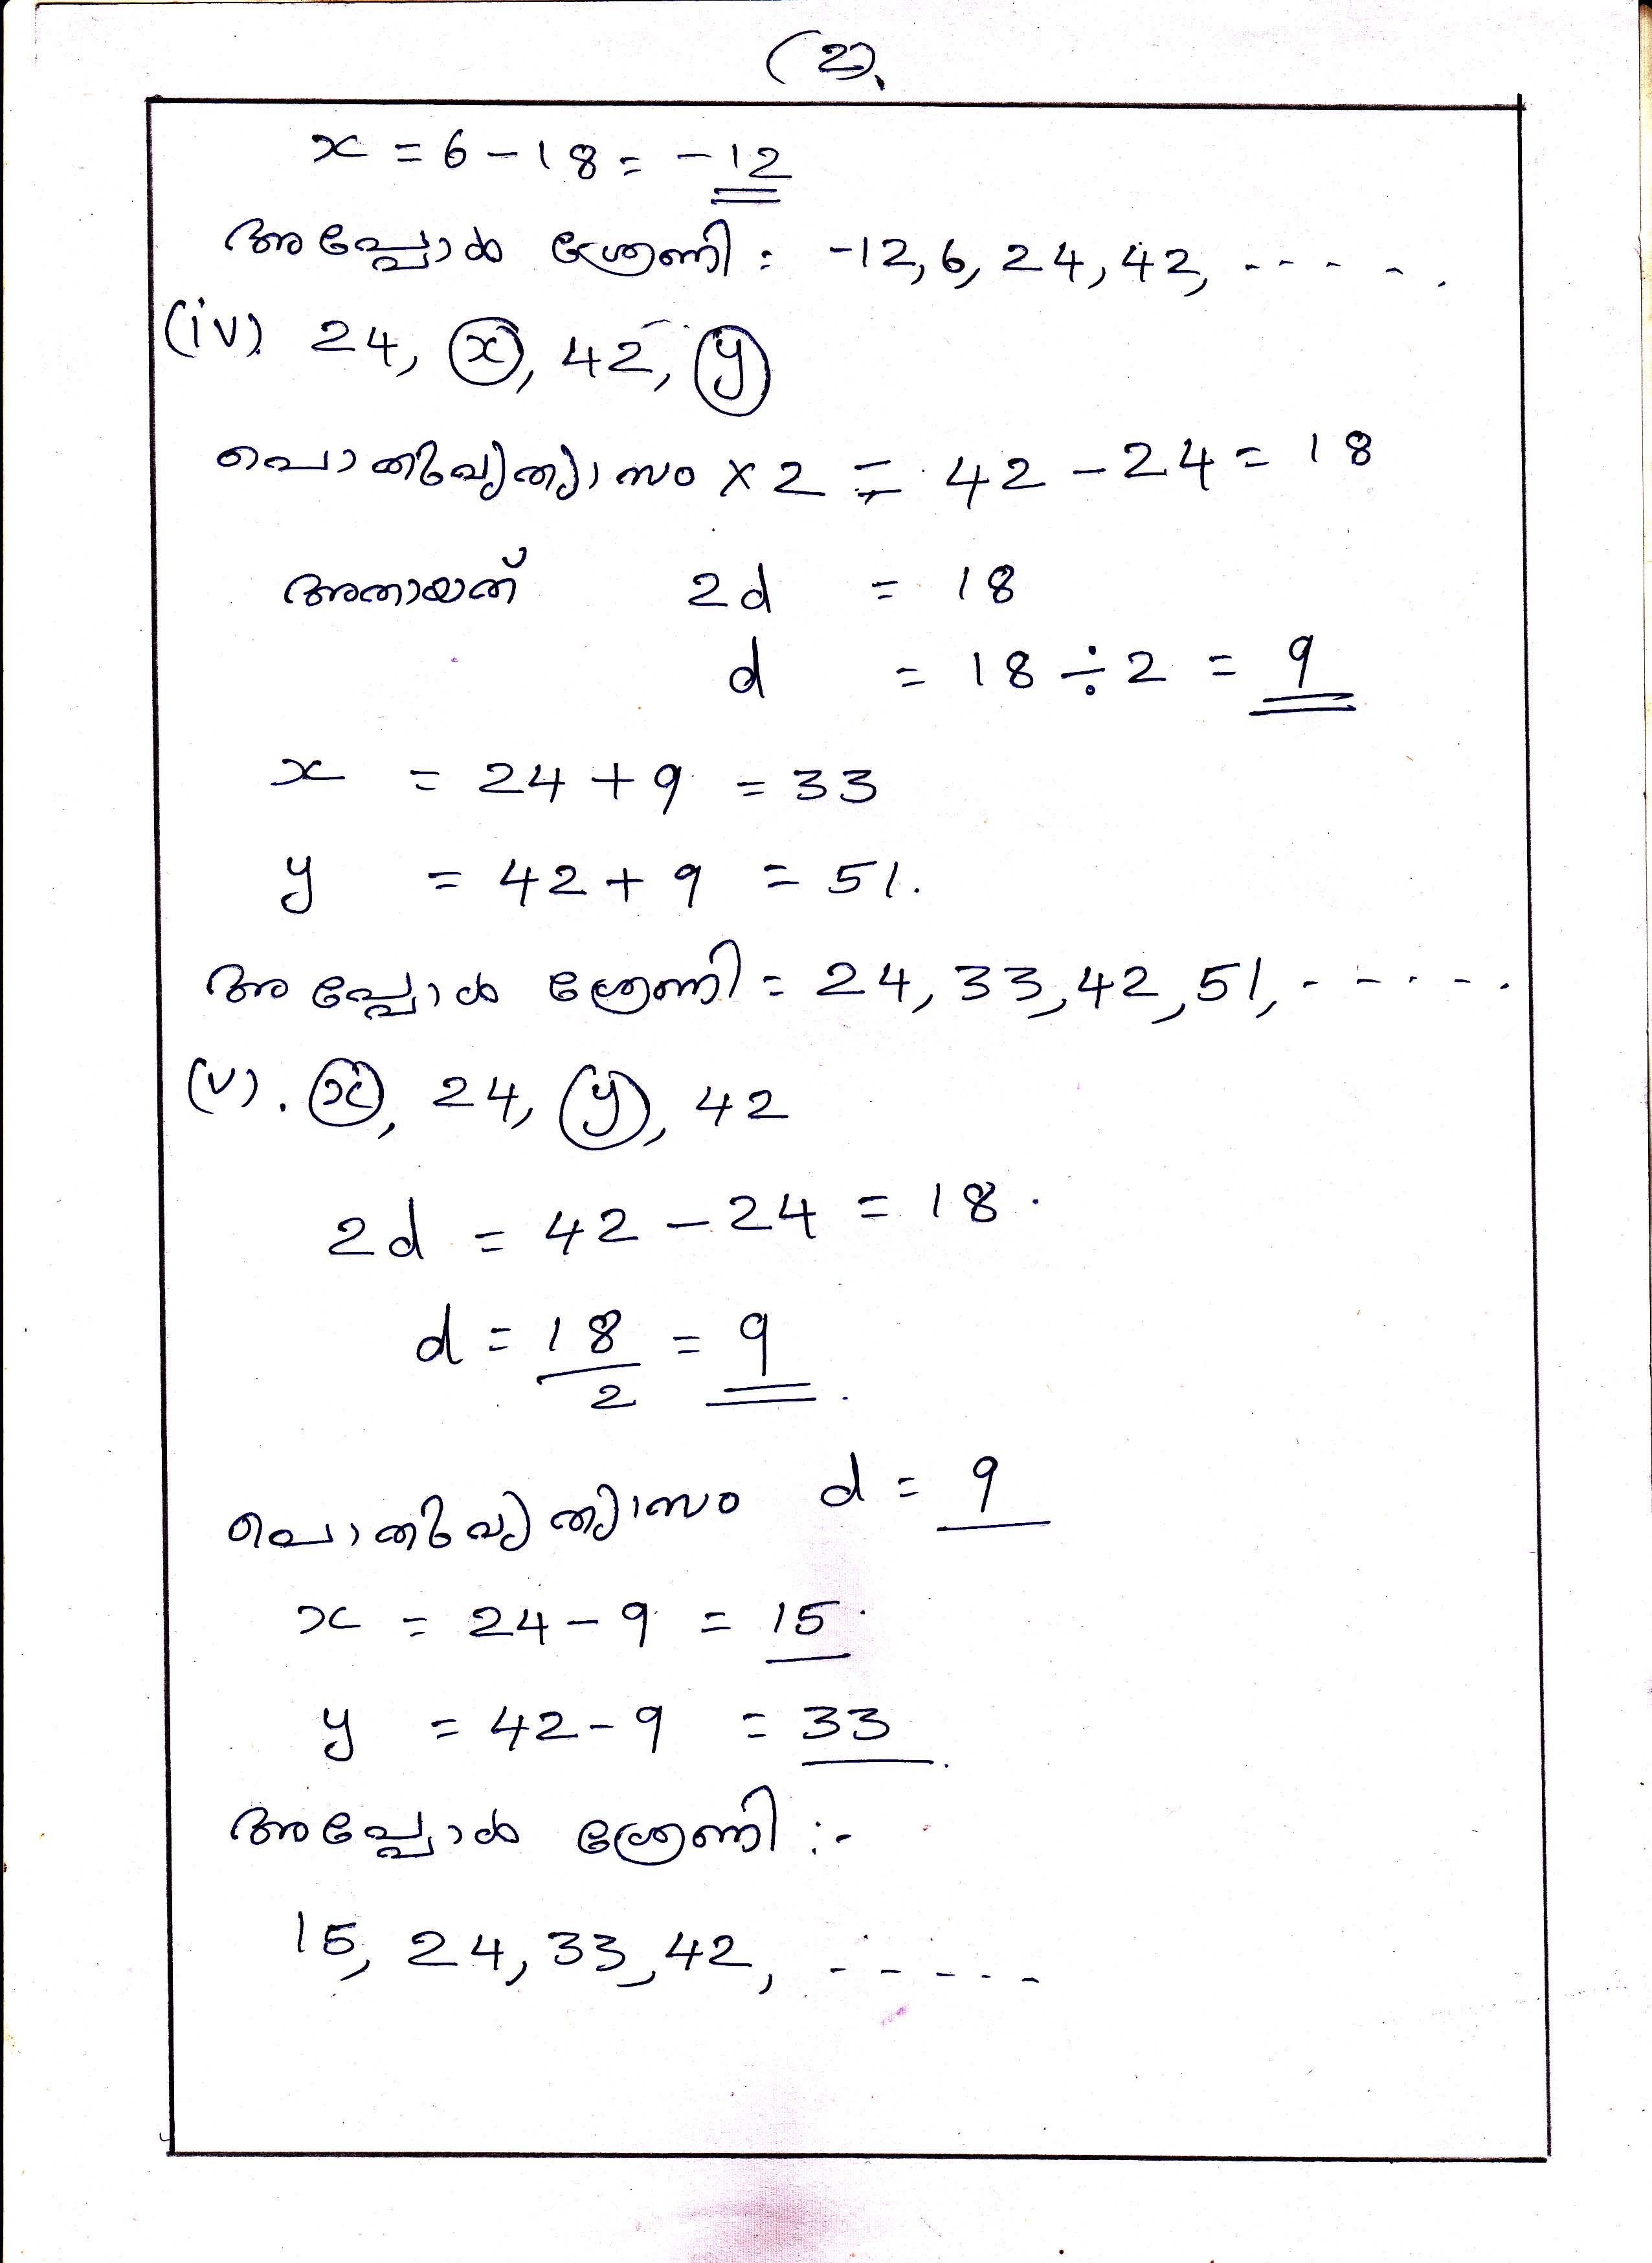 (2).
x = 6 - 18 = -12
അപ്പോൾ ശ്രേണി : -12, 6, 24, 42, - - - - .
(iv). 24, x, 42, y
പൊതുവ്യത്യാസം x 2 = 42 - 24 = 18
അതായത് 2d = 18
d = 18 ÷ 2 = 9
x = 24 + 9 = 33
y = 42 + 9 = 51.
അപ്പോൾ ശ്രേണി = 24, 33, 42, 51, - - - - - .
(v). x, 24, y, 42
2d = 42 - 24 = 18.
d = 18/2 = 9.
പൊതുവ്യത്യാസം d = 9
x = 24 - 9 = 15.
y = 42 - 9 = 33.
അപ്പോൾ ശ്രേണി :-
15, 24, 33, 42, - - - - - -